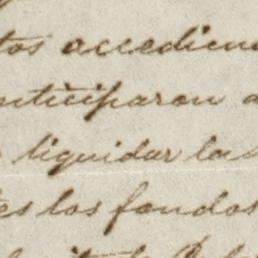 tos accedien
nticiparon a
liquidar las
es los fondos